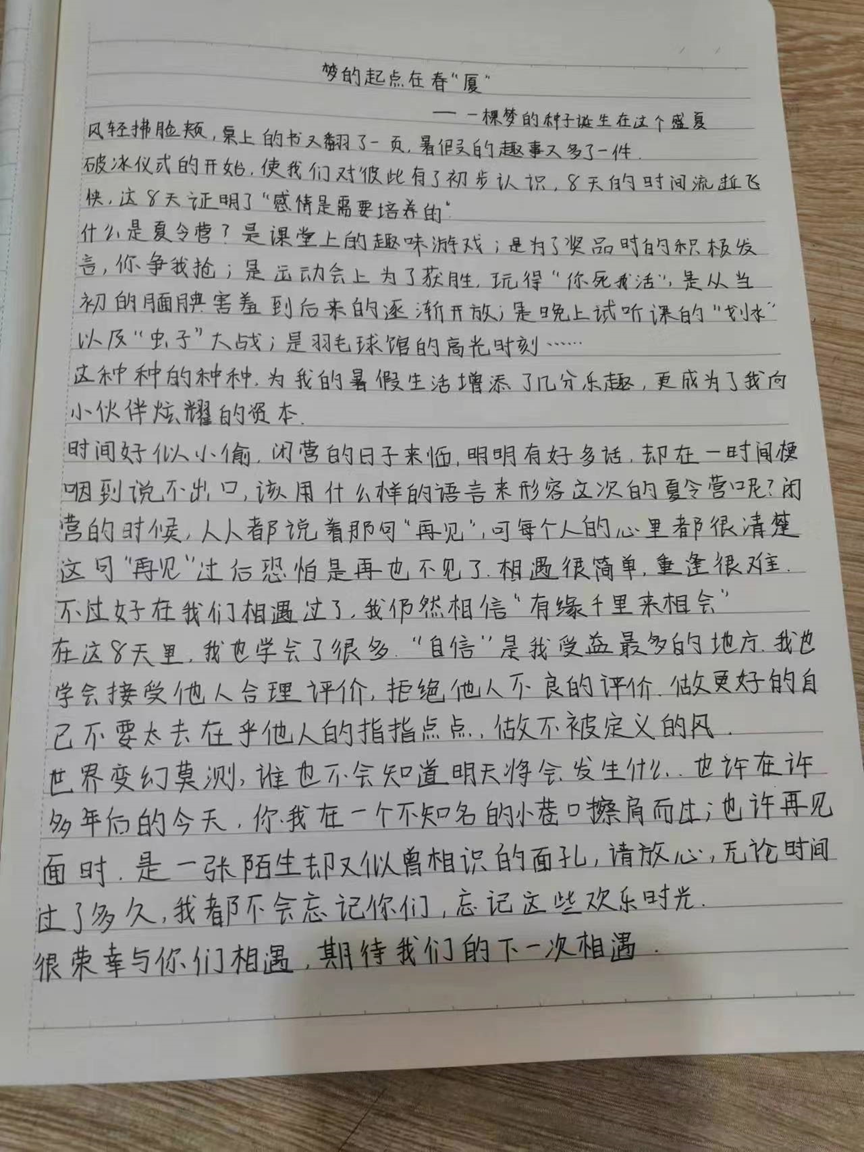 梦的起点在春“厦”
——一棵梦的种子诞生在这个盛夏
风轻拂脸颊,桌上的书又翻了一页,暑假的趣事又多了一件.
破冰仪式的开始,使我们对彼此有了初步认识,8天的时间流逝飞
快,这8天证明了“感情是需要培养的”
什么是夏令营?是课堂上的趣味游戏;是为了奖品时的积极发
言,你争我抢;是运动会上为了获胜,玩得“你死我活”,是从当
初的腼腆害羞到后来的逐渐开放;是晚上试听课的“划水”
以及“虫子”大战;是羽毛球馆的高光时刻……
这种种的种种,为我的暑假生活增添了几分乐趣,更成为了我向
小伙伴炫耀的资本.
时间好似小偷,闭营的日子来临,明明有好多话,却在一时间梗
咽到说不出口,该用什么样的语言来形容这次的夏令营呢?闭
营的时候,人人都说着那句“再见”,可每个人的心里都很清楚
这句“再见”过后恐怕是再也不见了.相遇很简单,重逢很难.
不过好在我们相遇过了,我仍然相信“有缘千里来相会”
在这8天里,我也学会了很多.“自信”是我受益最多的地方.我也
学会接受他人合理评价,拒绝他人不良的评价.做更好的自
己不要太去在乎他人的指指点点,做不被定义的风.
世界变幻莫测,谁也不会知道明天将会发生什么.也许在许
多年后的今天,你我在一个不知名的小巷口擦肩而过;也许再见
面时.是一张陌生却又似曾相识的面孔,请放心,无论时间
过了多久,我都不会忘记你们,忘记这些欢乐时光.
很荣幸与你们相遇,期待我们的下一次相遇.